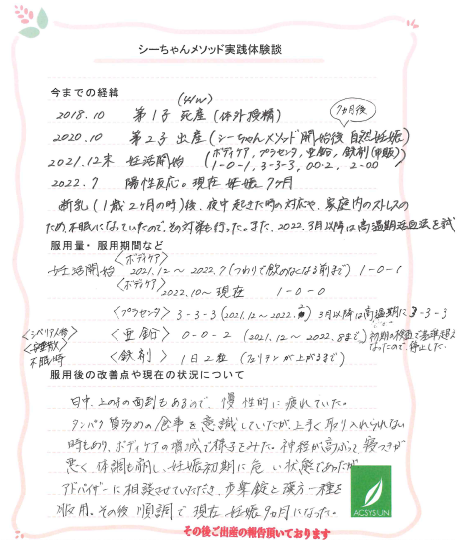 シーちゃんメソッド実践体験談
今までの経緯
2018.10 第1子 死産 (体外授精)
7ヵ月後
2020.10 第2子 出産 (シーちゃんメソッド開始後 自然妊娠)
2021.12末 妊活開始 (ボディケア, プラセンタ, 亜鉛, 鉄剤(市販))
1-0-1, 3-3-3, 00-2, 2-00
2022.7 陽性反応。現在 妊娠7ヶ月
断乳(1歳2ヶ月の時)後、夜中起きた時の対応や、家庭内のストレスの
ため、不眠になっていたので、その対策も行った。また、2022.3月以降は高温期
服用量・服用期間など
<ボディケア>
妊活開始 2021.12〜2022.7(つわりで飲めなくなる前まで) 1-0-1
<ボディケア>
2022.10〜現在 1-0-0
<プラセンタ> 3-3-3 (2021.12〜2022. 3月以降は高温期に3-3-3
<シベリア人参>
不眠時
<亜鉛> 0-0-2 (2021.12〜2022.8まで) 初期の検査で基準超え
なったので、停止した。
<鉄剤> 1日2粒 (フェリチンが上がるまで)
服用後の改善点や現在の状況について
日中、上の子の面倒もあるので、慢性的に疲れていた。
タンパク質多めの食事を意識していたが、上手く取り入れられない
時もあり、ボディケアの増減で様子をみた。神経が高ぶって寝つきが
悪く、体調も崩し、妊娠初期に危い状態であったが
アドバイザーに相談させていただき、歩華錠と漢方一種を
服用。その後順調で現在妊娠7ヶ月になった。
ACSYSUN
その後ご出産の報告頂いております